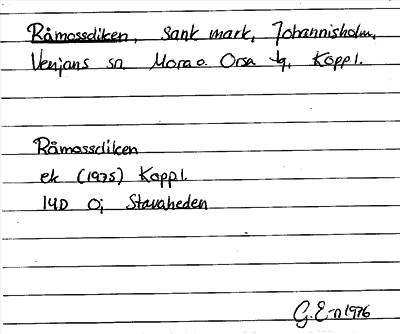 Råmossdiken, sank mark, Johannisholm,
Venjans sn, Mora o. Orsa tg, Koppl.
Råmossdiken
ek (1975) Koppl.
14D 0j Stavaheden
G. E-n 1976